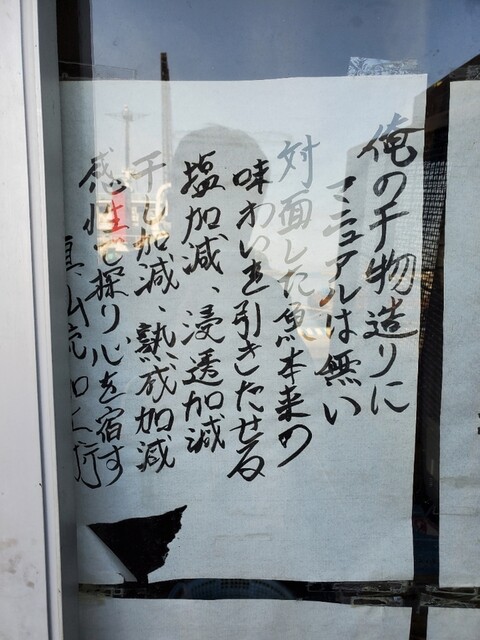 俺の干物造りに
マニュアルは無い
対面した魚本来の
味わいを引きだせる
塩加減、浸透加減
干し加減、熟成加減
感性で探り心を宿す